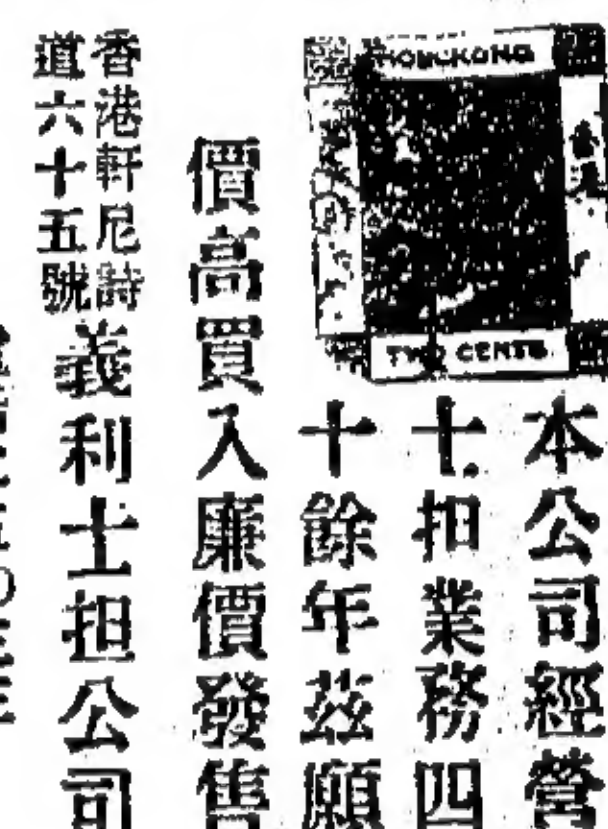 HONGKONG
TWO CENTS
本公司經營
士担業務四
十餘年茲願
價高買入廉價發售
香港軒尼詩
道六十五號
義利士担公司